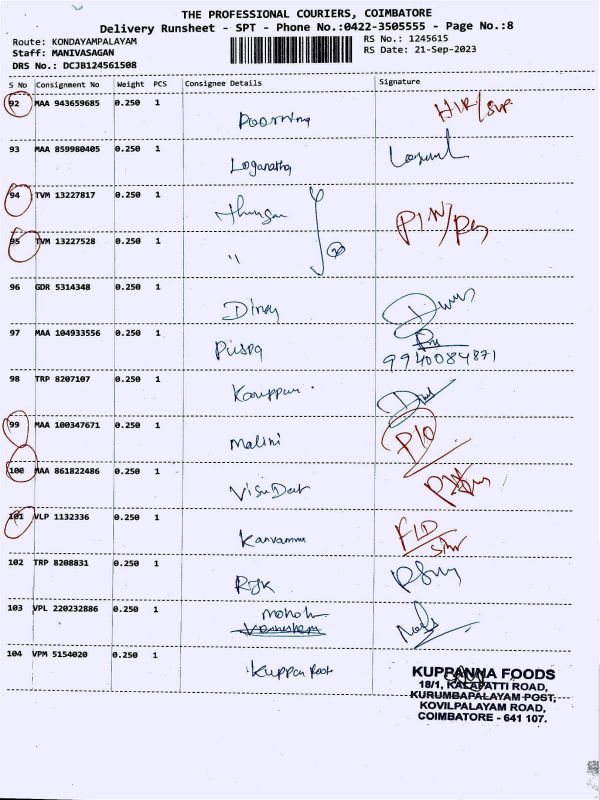 THE PROFESSIONAL COURIERS, COIMBATORE
Delivery Runsheet - SPT - Phone No.:0422-3505555 - Page No.:8
Route: KONDAYAMPALAYAM
Staff: MANIVASAGAN
DRS No.: DCJB124561508
RS No.: 1245615
RS Date: 21-Sep-2023
S No Consignment No Weight PCS Consignee Details Signature
92 MAA 943659685 0.250 1
93 MAA 859980405 0.250 1
Loganatha
94 TVM 13227817 0.250 1
95 TVM 13227528 0.250 1
"
96 GDR 5314348 0.250 1
97 MAA 104933556 0.250 1
Puspa
9940084871
98 TRP 8207107 0.250 1
99 MAA 100347671 0.250 1
Malini P/O
100 MAA 861822486 0.250 1
101 VLP 1132336 0.250 1
102 TRP 8208831 0.250 1
103 VPL 220232886 0.250 1
104 VPM 5154020 0.250 1
KUPPANNA FOODS
18/1, KALAPATTI ROAD,
KURUMBAPALAYAM POST,
KOVILPALAYAM ROAD,
COIMBATORE - 641 107.